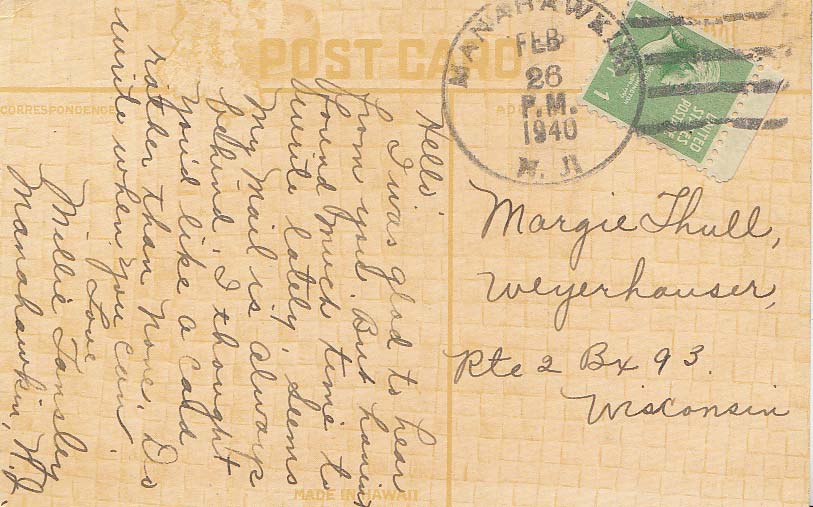 POST CARD
CORRESPONDENCE
MANAHAWKIN
FEB
26
P.M.
1940
N. J.
1
UNITED
STATES
POSTAGE
Hello
I was glad to hear
from you. But havent
found much time to
write lately, seems
My Mail is always
behind. I thought
you'd like a card
rather than None. Do
write when you can.
Love
Millie Tansley
Manahawkin, N.J.
Margie Thull,
Weyerhauser,
Rte 2 Bx 93.
Wisconsin
MADE IN HAWAII